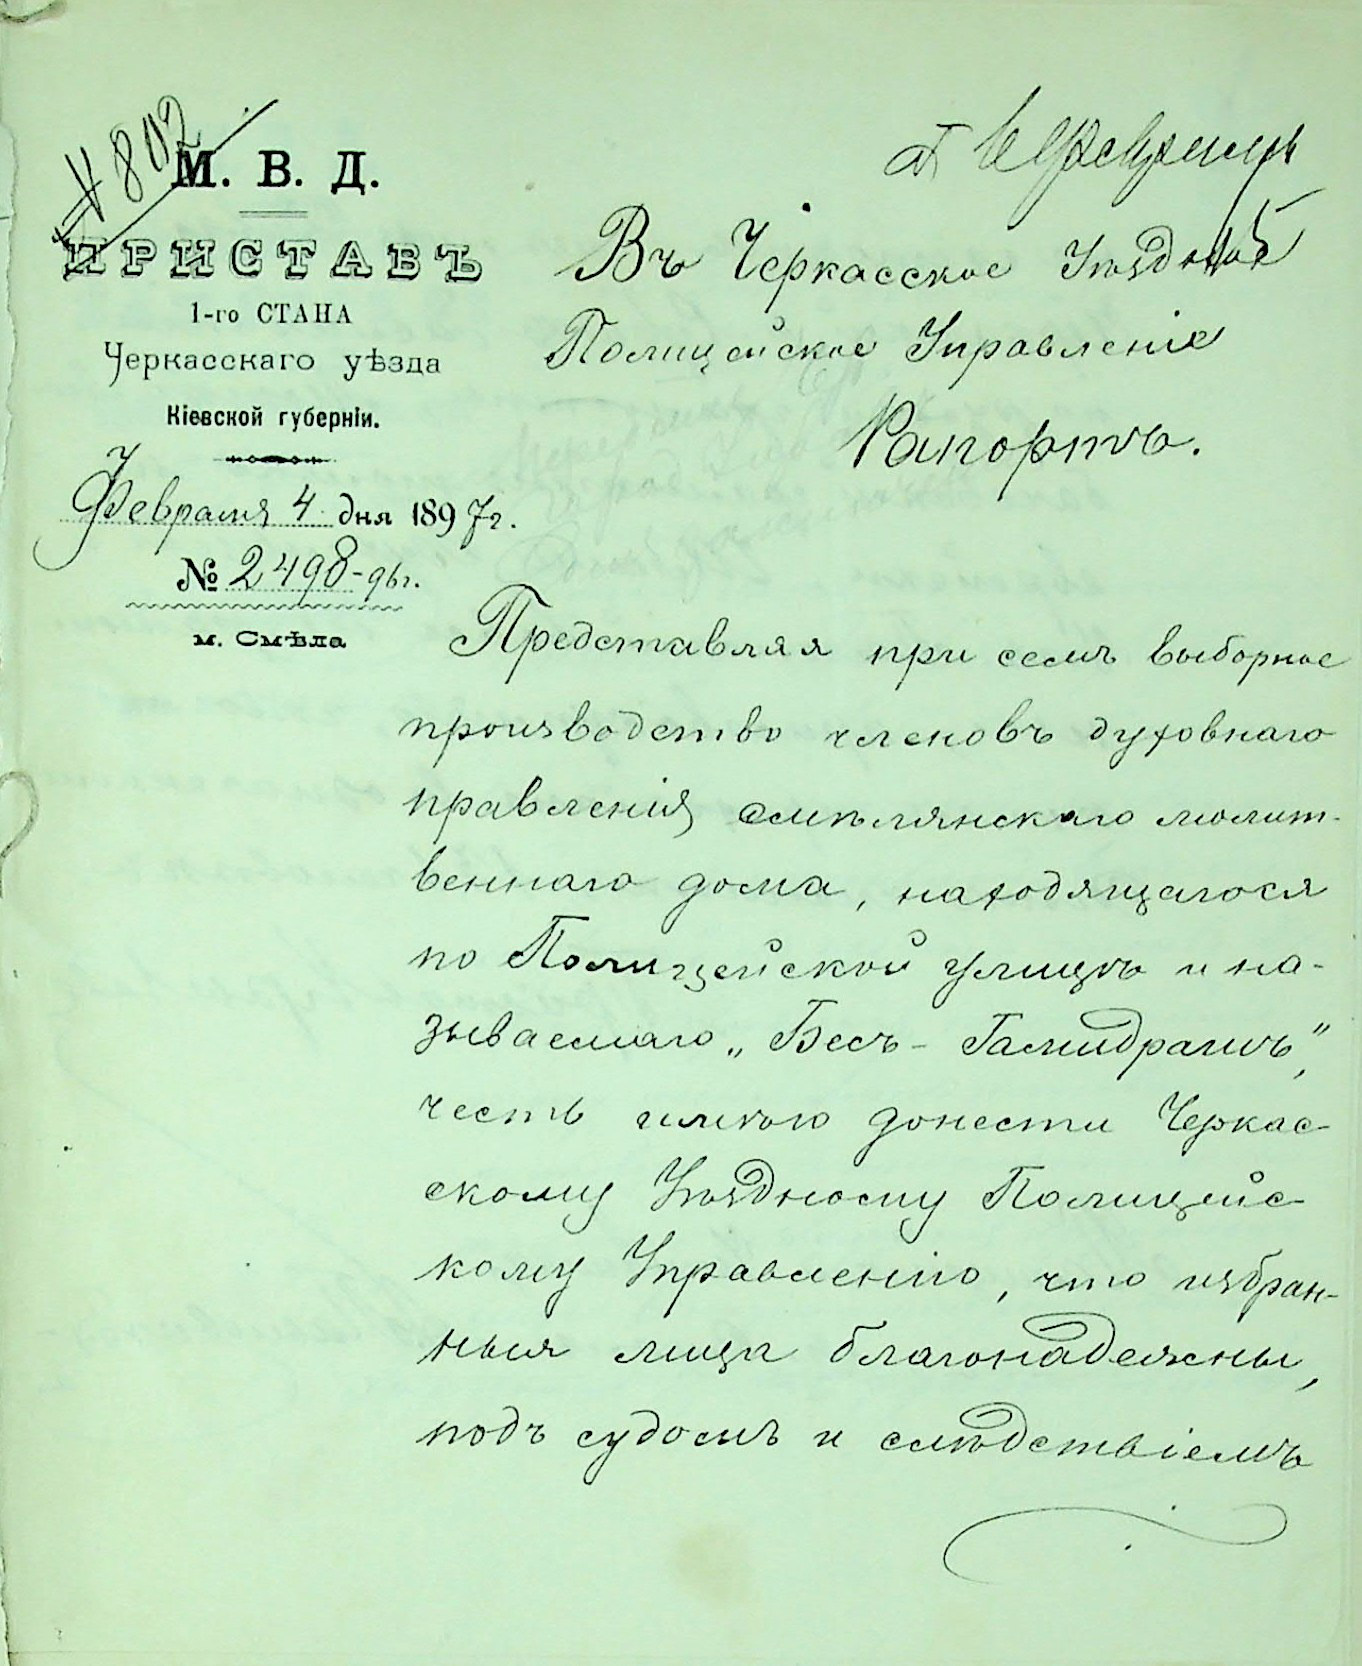 № 802
М. В. Д.
ПРИСТАВЪ
1-го СТАНА
Черкасскаго уѣзда
Кіевской губерніи.
Февраля 4 дня 1897 г.
№ 2498-96 г.
м. Смѣла
Въ Черкасское Уѣздное
Полицейское Управленіе
Рапортъ.
Представляя при семъ выборное
производство членовъ духовнаго
правленія смѣлянскаго молит-
веннаго дома, находящагося
по Полицейской улицѣ и на-
зываемаго „Бесъ-Гамидрашъ",
честь имѣю донести Черкас-
скому Уѣздному Полицейс-
кому Управленію, что избран-
ныя лица благонадежны,
подъ судомъ и слѣдствіемъ